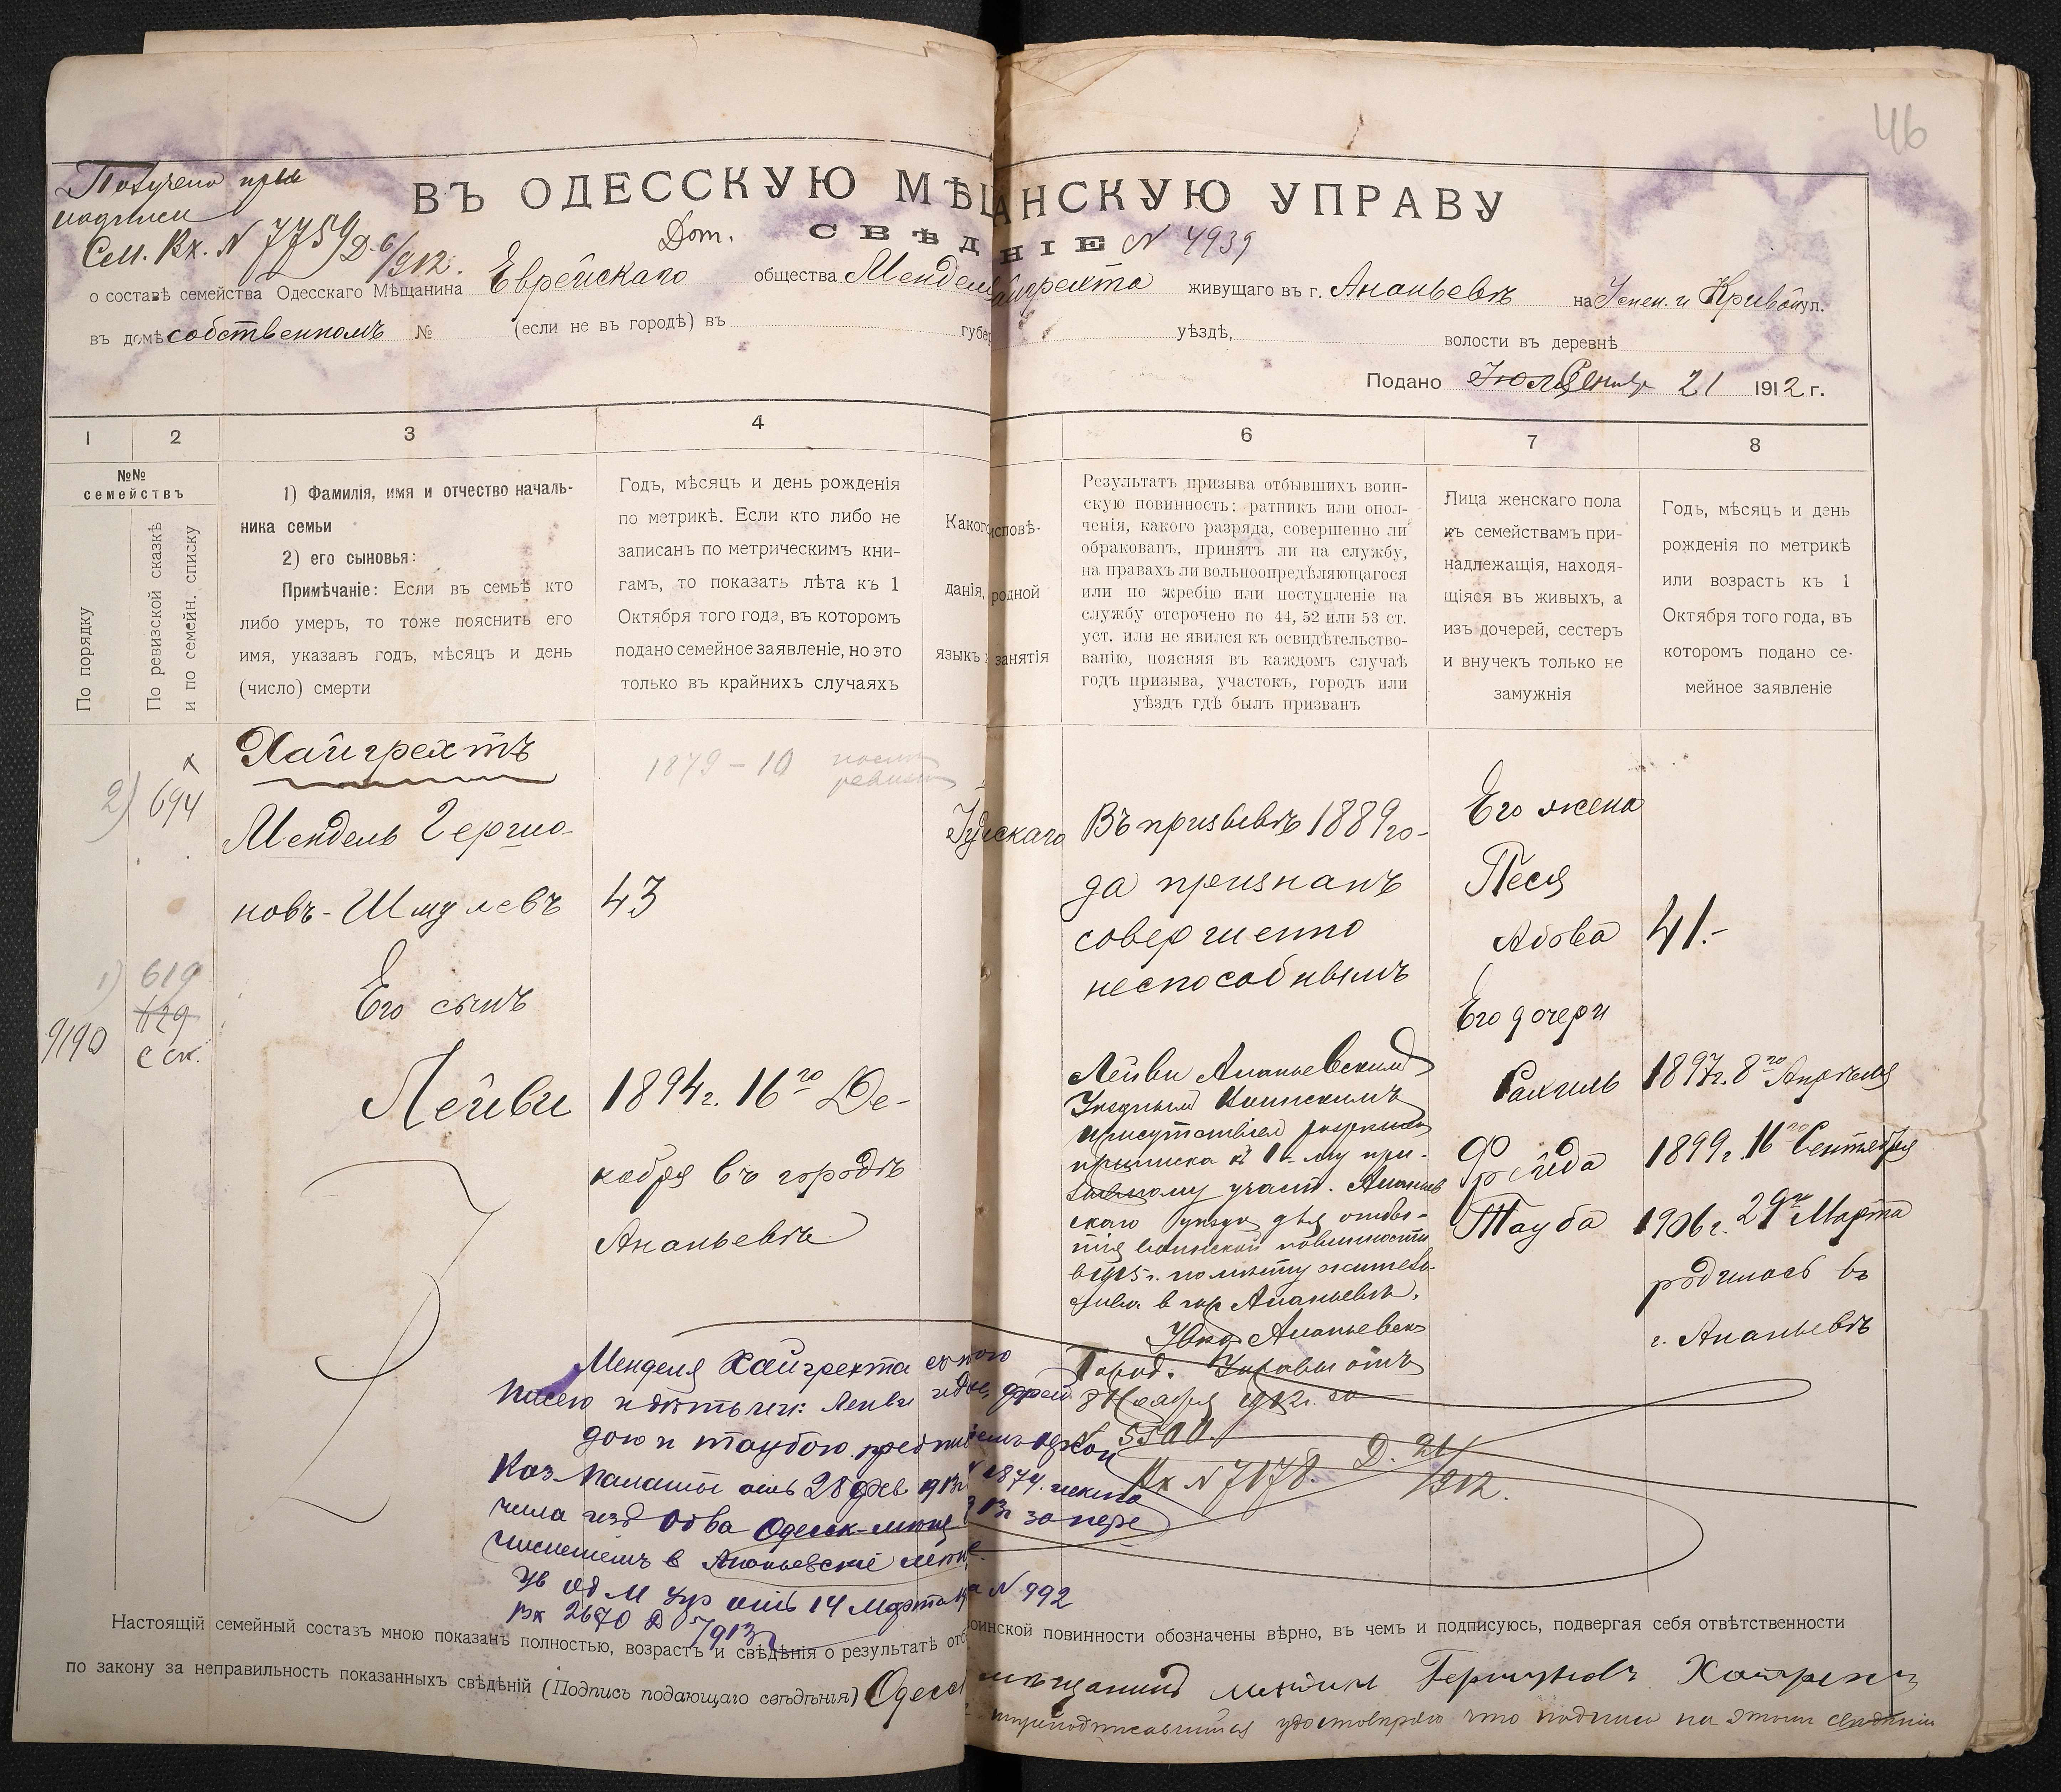 46
Получено при
подписи
См. Вх. N 7759 Д. 6/912.
ВЪ ОДЕССКУЮ МѢЩАНСКУЮ УПРАВУ
Доп. СВѢДѢНІЕ N 4939
о составѣ семейства Одесскаго Мѣщанина Еврейскаго общества Менделя Хайгрехта живущаго въ г. Ананьевѣ на Успен. и Кривой ул.
въ домѣ собственномъ № (если не въ городѣ) въ губер уѣздѣ, волости въ деревнѣ
Подано 21 1912 г.
1 2 3 4 6 7 8
№№
семействъ
По порядку
По ревизской сказкѣ
и по семейн. списку
1) Фамилія, имя и отчество началь-
ника семьи
2) его сыновья:
Примѣчаніе: Если въ семьѣ кто
либо умеръ, то тоже пояснить его
имя, указавъ годъ, мѣсяцъ и день
(число) смерти
Годъ, мѣсяцъ и день рожденія
по метрикѣ. Если кто либо не
записанъ по метрическимъ кни-
гамъ, то показать лѣта къ 1
Октября того года, въ которомъ
подано семейное заявленіе, но это
только въ крайнихъ случаяхъ
Какого исповѣ-
данія, родной
языкъ и занятія
Результатъ призыва отбывшихъ воин-
скую повинность: ратникъ или опол-
ченія, какого разряда, совершенно ли
обракованъ, принятъ ли на службу,
на правахъ ли вольноопредѣляющагося
или по жребію или поступленіе на
службу отсрочено по 44, 52 или 53 ст.
уст. или не явился къ освидѣтельство-
ванію, поясняя въ каждомъ случаѣ
годъ призыва, участокъ, городъ или
уѣздъ гдѣ былъ призванъ
Лица женскаго пола
къ семействамъ при-
надлежащія, находя-
щіяся въ живыхъ, а
изъ дочерей, сестеръ
и внучекъ только не
замужнія
Годъ, мѣсяцъ и день
рожденія по метрикѣ
или возрастъ къ 1
Октября того года, въ
которомъ подано се-
мейное заявленіе
2) 694
1) 619
1129
9190 с ск.
Хайгрехтъ
Мендель Гершо-
новъ-Шмулевъ
Его сынъ
Лейви
1879 - 10 после ревизіи
43
1894 г. 16го Де-
кабря въ городѣ
Ананьевѣ
Іудейскаго
Въ призывѣ 1889 го-
да признанъ
совершенно
неспособнымъ
Лейви Ананьевскимъ
Уѣзднымъ Воинскимъ
присутствіем разрѣшена
приписка к 1-му при-
зывному участ. Ананьев
скаго уѣзда для отбы-
тія воинской повинности
в 1915 г. по мѣсту житель-
ства в гор Ананьевѣ.
Ананьевск
Город. Управы отъ
8 Ноября 1912 г. за
N 5500.
Вх N 7178. Д. 21/912.
Его жена
Песя
Абова
Его дочери
Рахиль
Фрейда
Тауба
41.-
1897 г. 8го Апрѣля
1899 г. 16го Сентября
1906 г. 29го Марта
родилась въ
г. Ананьевѣ
Менделя Хайгрехта съ женою
Песею и дѣтьми: Лейви Фрей
дою и Таубою предписаніемъ
Каз. Палаты отъ 28 Фев 1913 г 1874 исклю
чила изъ Об ва Одесск. мѣщ. за пере
численіемъ в Ананьевскіе мѣщ.
Ув Од М Упр отъ 14 Марта N 992
Вх 2670 Д 5/913
Настоящій семейный составъ мною показанъ полностью, возрастъ и свѣдѣнія о результатѣ отб воинской повинности обозначены вѣрно, въ чемъ и подписуюсь, подвергая себя отвѣтственности
по закону за неправильность показанныхъ свѣдѣній (Подпись подающаго свѣдѣнія) Одесс мѣщанинъ Гершуновъ Хайгрехт
удостовѣряю что подпись на этомъ свѣдѣніи